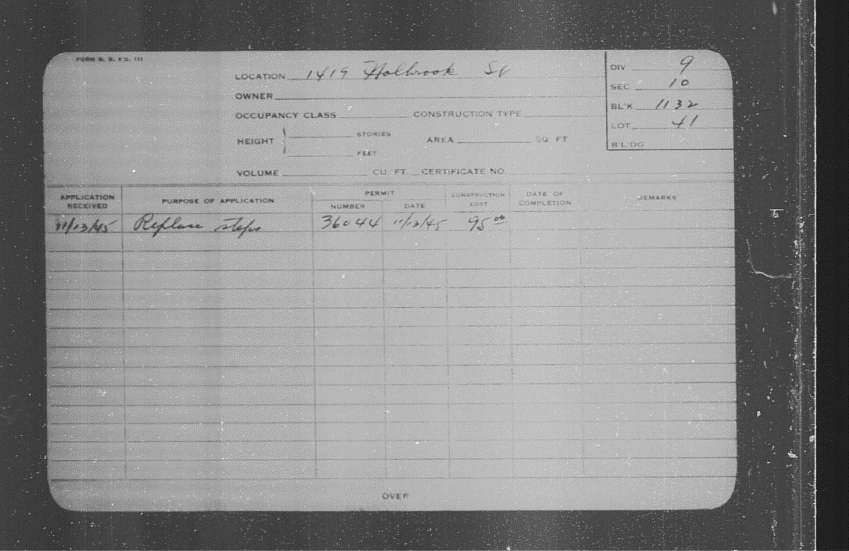 FORM B. B. P'D. 111
LOCATION 1419 Holbrook St
OWNER
OCCUPANCY CLASS CONSTRUCTION TYPE
HEIGHT STORIES AREA SQ. FT
FEET
VOLUME CU. FT. CERTIFICATE NO.
DIV 9
SEC. 10
BL'K 1132
LOT 41
B'L'DG
APPLICATION RECEIVED PURPOSE OF APPLICATION PERMIT NUMBER DATE CONSTRUCTION COST DATE OF COMPLETION REMARKS
11/13/45 Replace steps 36044 11/13/45 95.00
OVER